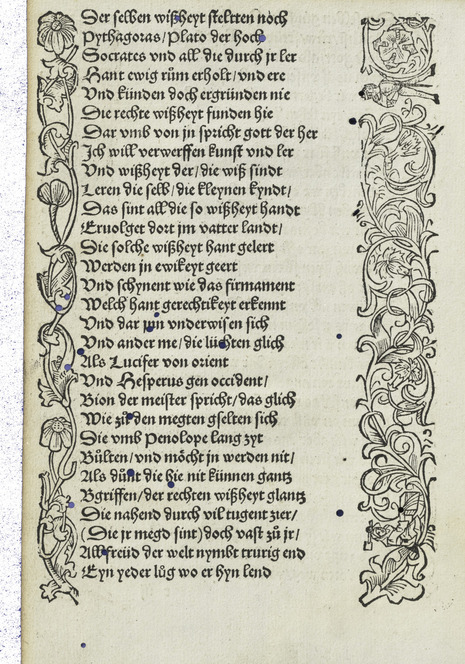 Der selben wißheyt stelten noch
Pythagoras/Plato der hoch
Socrates vnd all die durch jr ler
Hant ewig rům erholt/vnd ere
Vnd kůnden doch ergründen nie
Die rechte wißheyt funden hie
Dar vmb von jn spricht gott der her
Ich will verwerffen kunst vnd ler
Vnd wißheyt der/die wiß sindt
Leren die selb/die kleynen kyndt/
Das sint all die so wißheyt handt
Eruolget dort jm vatter landt/
Die solche wißheyt hant gelert
Werden jn ewikeyt geert
Vnd schynent wie das firmament
Welch hant gerechtikeyt erkennt
Vnd dar jnn vnderwisen sich
Vnd ander me/die lüchten glich
Als Lucifer von orient
Vnd Hesperus gen occident/
Bion der meister spricht/das glich
Wie zů den megten gselten sich
Die vmb Penolope lang zyt
Bülten/vnd möcht jn werden nit/
Als důnt die hie nit künnen gantz
Bgriffen/der rechten wißheyt glantz
Die nahend durch vil tugent zier/
(Die jr megd sint)doch vast zů jr/
All freüd der welt nymbt trurig end
Eyn yeder lůg wo er hyn lend